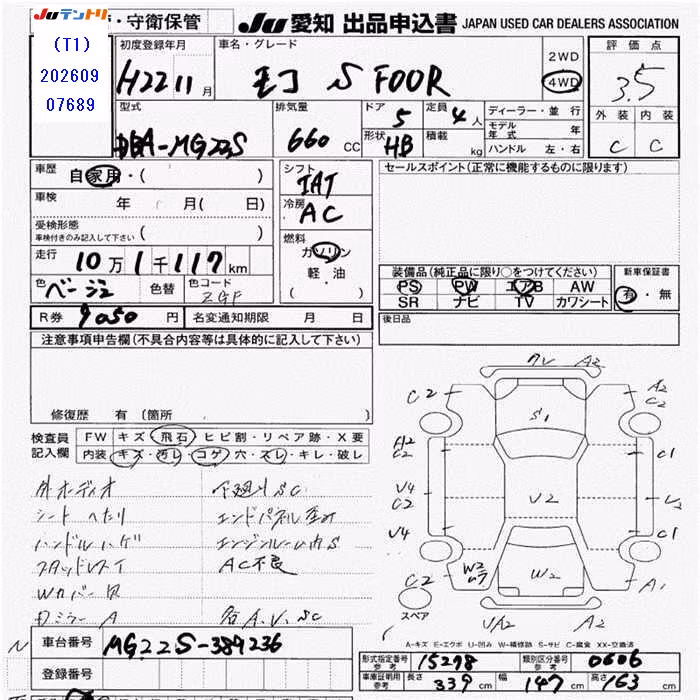 JUテントリ
・守衛保管
JU 愛知 出品申込書 JAPAN USED CAR DEALERS ASSOCIATION
(T1)
202609
07689
初度登録年月
H22 11月
車名・グレード
モコ S FOUR
2WD
4WD
評価点
3.5
外装 内装
C C
型式
DBA-MG22S
排気量
660 CC
ドア 5
形状 HB
定員 4人
積載 kg
ディーラー・並行
モデル年式 年
ハンドル 左・右
車歴
自家用・( )
車検
年 月( 日)
受検形態
車検付きのみ記入して下さい ( )
走行
10万1千117km
色 ベージュ 色替 色コード ZGF
シフト
IAT
冷房
AC
燃料
ガソリン
軽・油
( )
セールスポイント(正常に機能するものに限ります)
装備品(純正品に限り○をつけてください)
PS PW エアB AW
SR ナビ TV カワシート
新車保証書
有・無
R券 9050円 名変通知期限 月 日
後日品
注意事項申告欄(不具合内容等は具体的に記入して下さい)
修復歴 有(箇所
検査員
記入欄
FW キズ・飛石・ヒビ割・リペア跡・X要
内装 キズ・汚レ・コゲ・穴・スレ・キレ・破レ
外オーディオ
シートへたり
ハンドルハゲ
スタッドレスタイ
Wカバー欠
Dミラー A
下廻りSC
エンドパネル歪み
エンジンルーム内S
AC不良
各A.V.SC
クレ A2
C2
S1
A2
C2
A2
C2
C1
V4
C2
V2
V4
C1
C2
W2
ムラ
W2
A1
スペア
VA2
A2
A-キズ E-エクボ U-凹み W-補修跡 S-サビ C-腐食 XX-交換済
車台番号 MG22S-387236
登録番号
型式指定番号
参考
15298
類別区分番号
参考
0606
車庫証明用
参考
長さ 339cm 幅 147cm 高さ 163cm